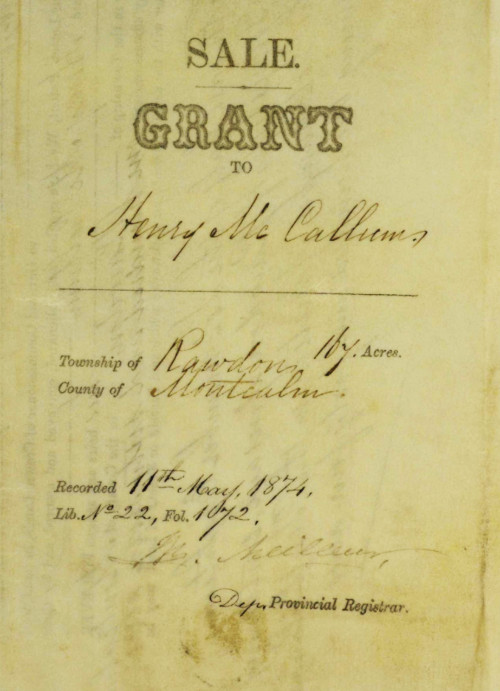 SALE.
GRANT
TO
Henry Mc Callum.
Township of Rawdon 167. Acres.
County of Montcalm.
Recorded 11th May, 1874.
Lib. No 22, Fol. 1072.
Dep. Provincial Registrar.